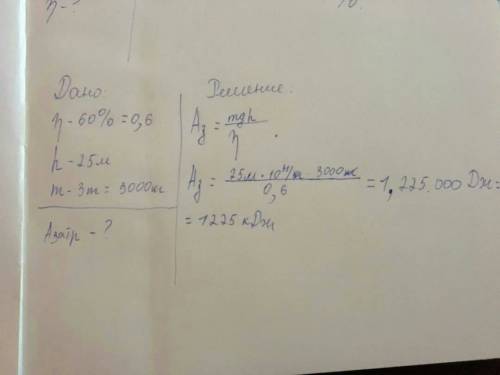 η-?
%.
Дано:
η - 60% = 0,6
h - 25м
m - 3т = 3000кг
Aзатр - ?
Решение:
Aз = mgh / η .
Aз = 25м · 10 Н/кг · 3000кг / 0,6 = 1,225.000 Дж =
= 1225 кДж